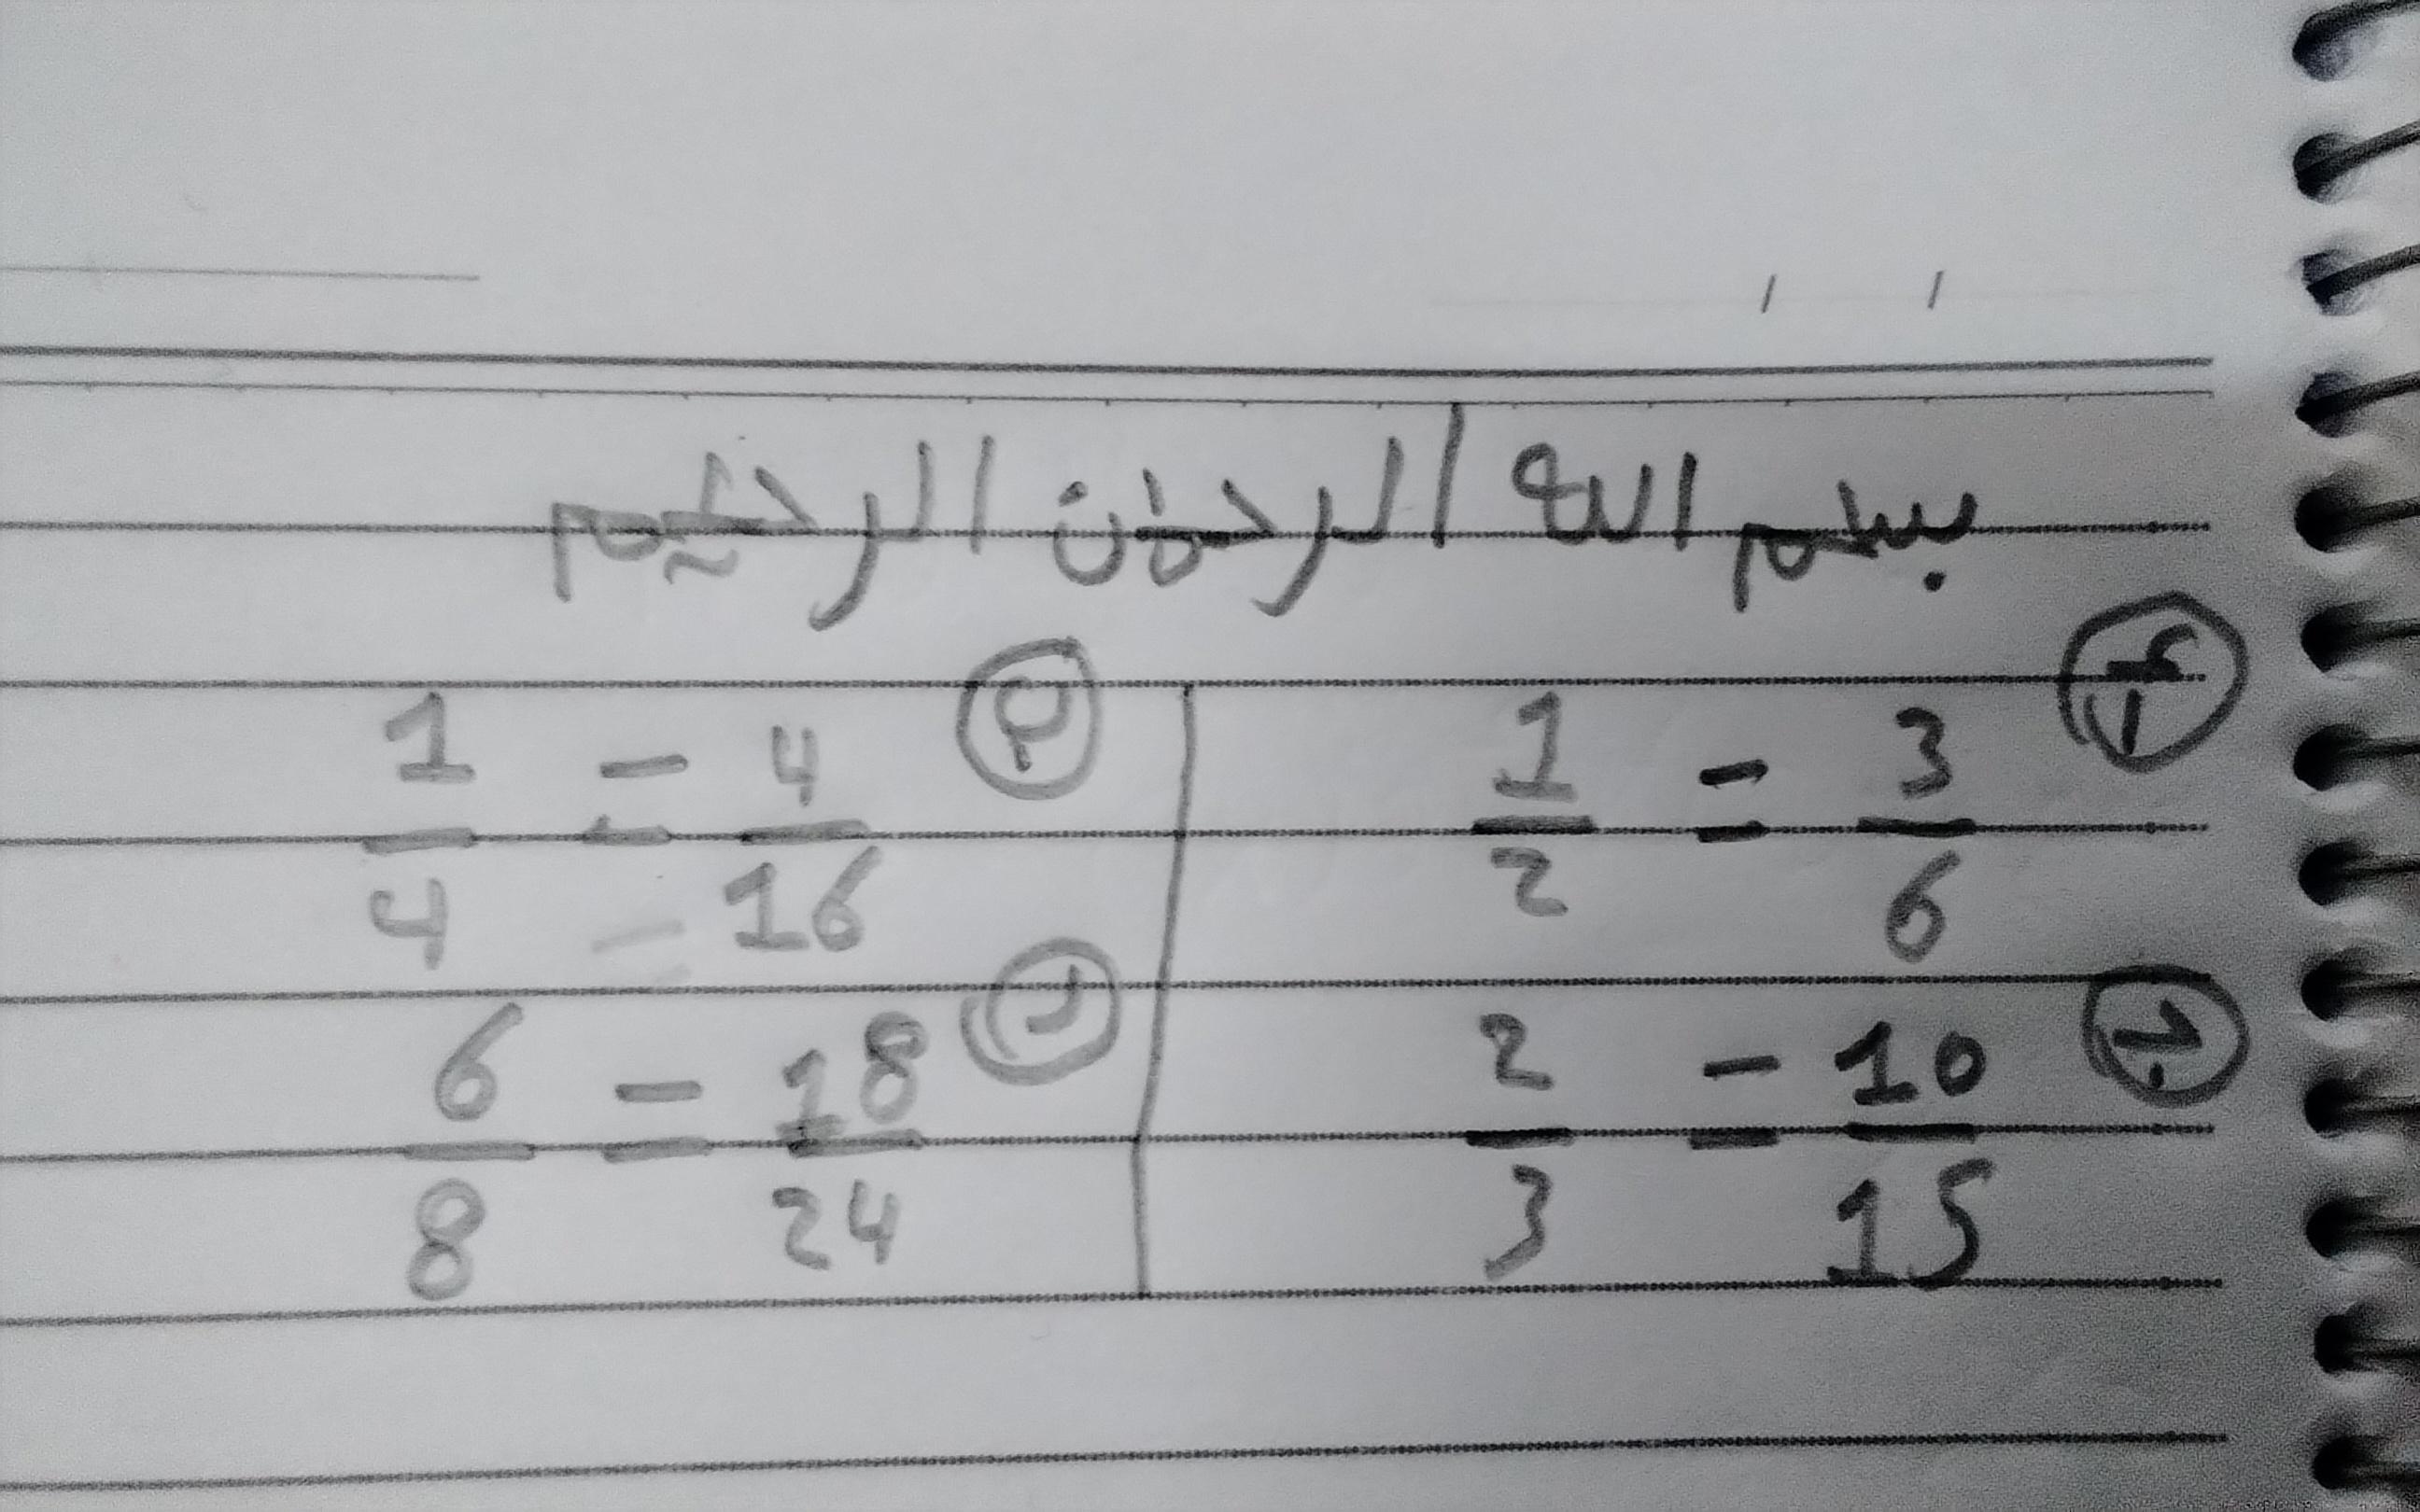 بسم الله الرحمن الرحیم
1/2 = 3/6
ب 1/4 = 4/16
ج 2/3 = 10/15
د 6/8 = 18/24